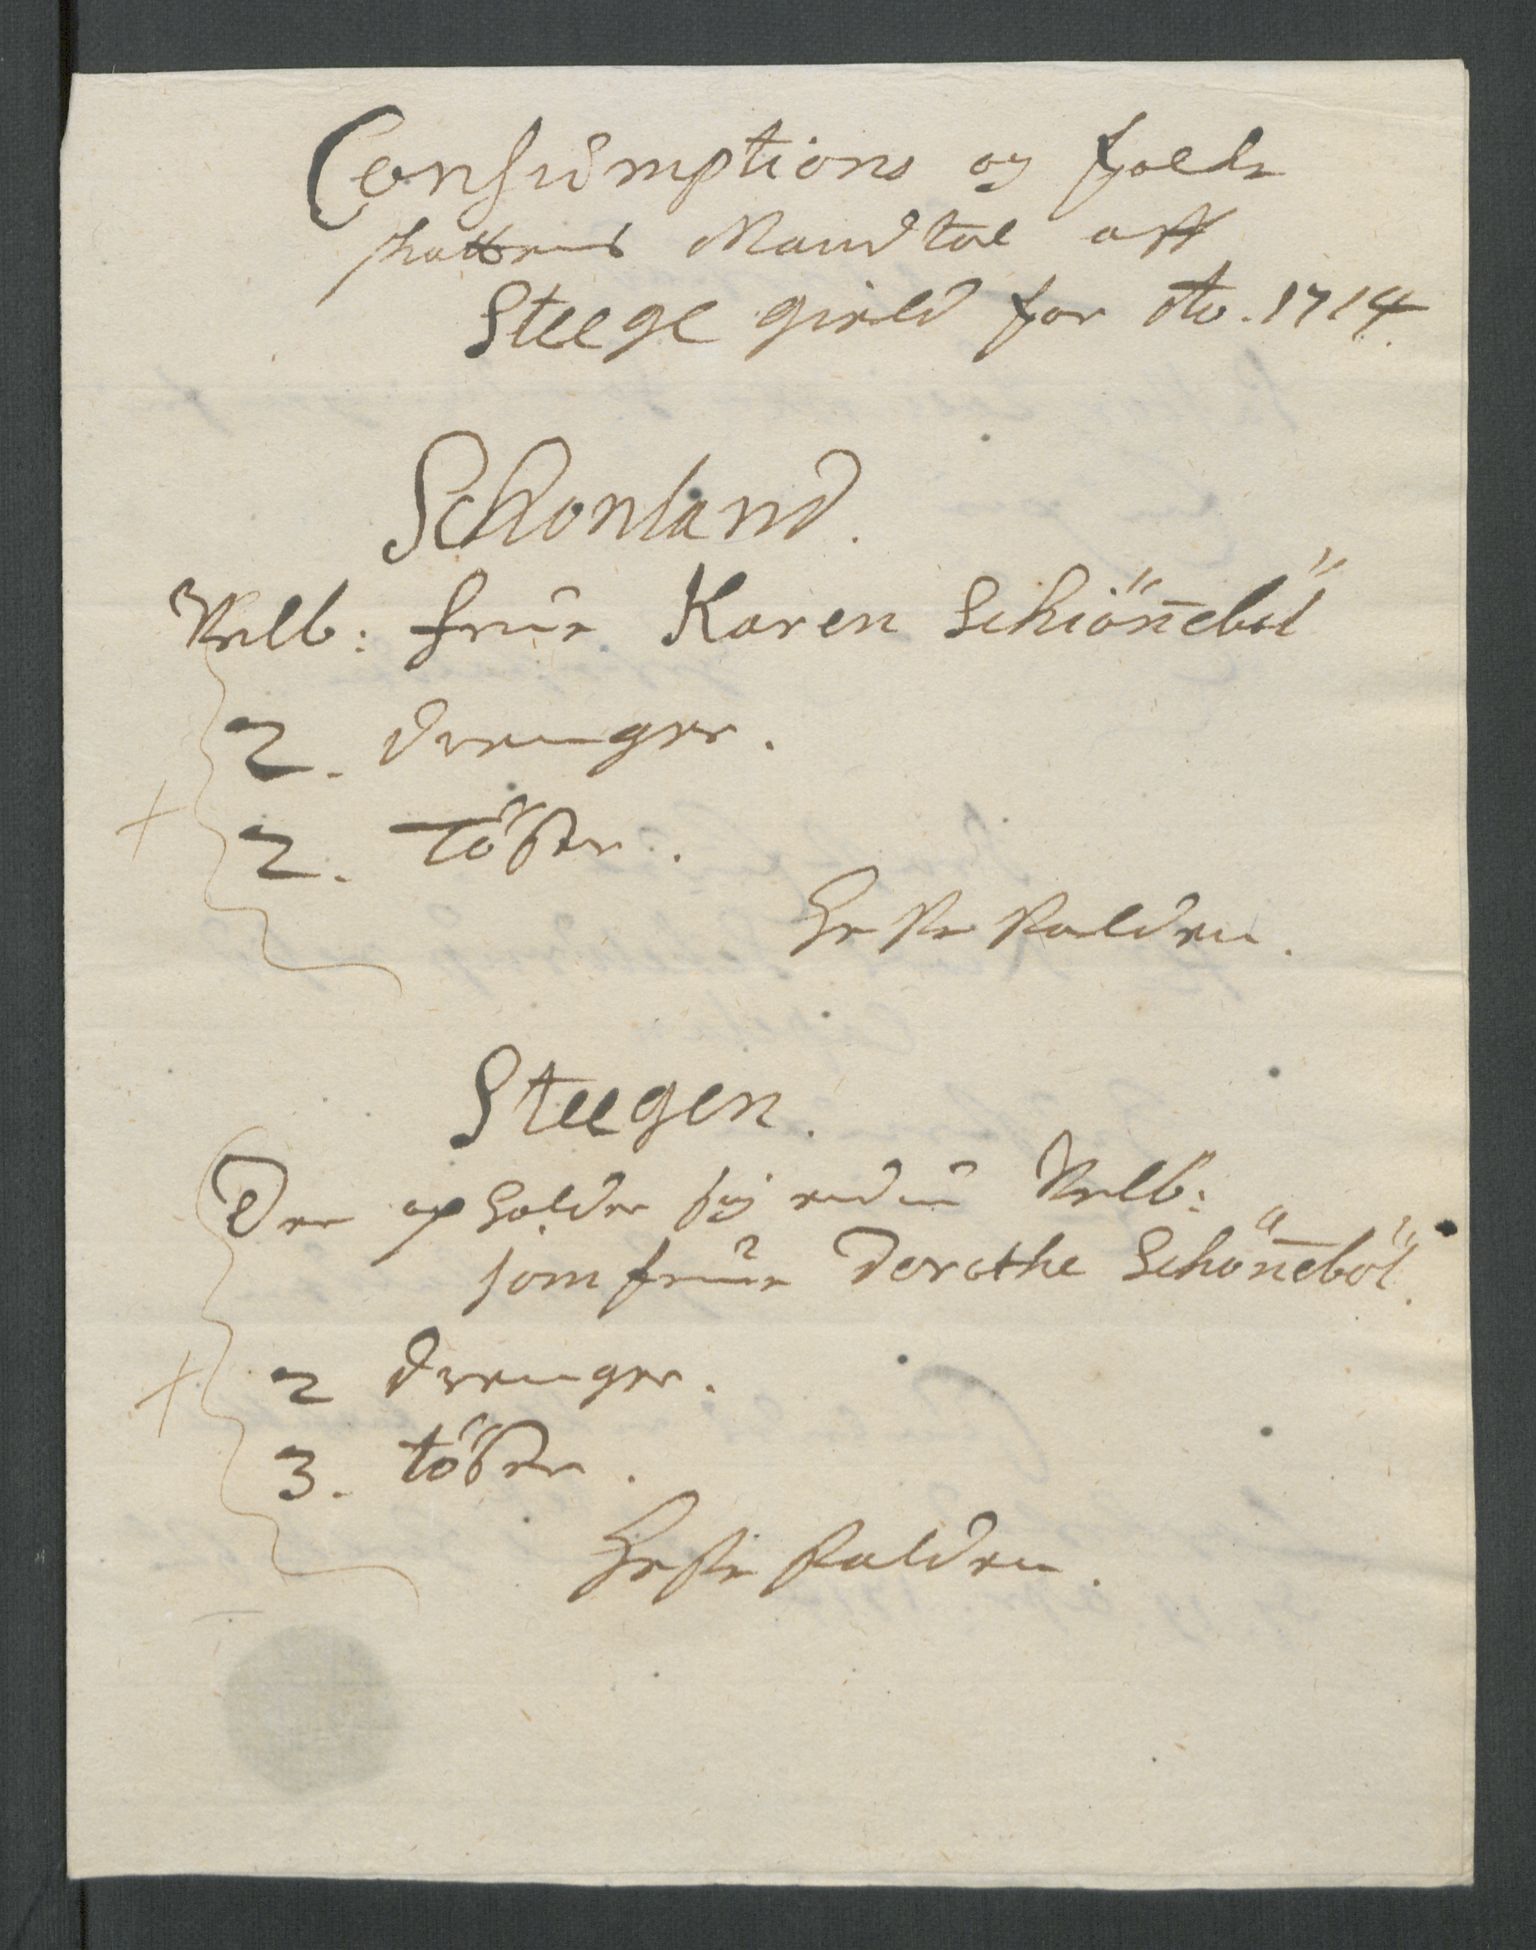 Consumptions og folche
skattens Mandtal aff
Steege gield for Ao. 1714
Schonland.
Velb: frue Karen Schiöneböl
2. drenger.
2. töster.
Hestekalden.
Steegen.
Der opholder sig endnu Velb:
jomfrue Dorothe Schöneböl.
2 drenger.
3. töster.